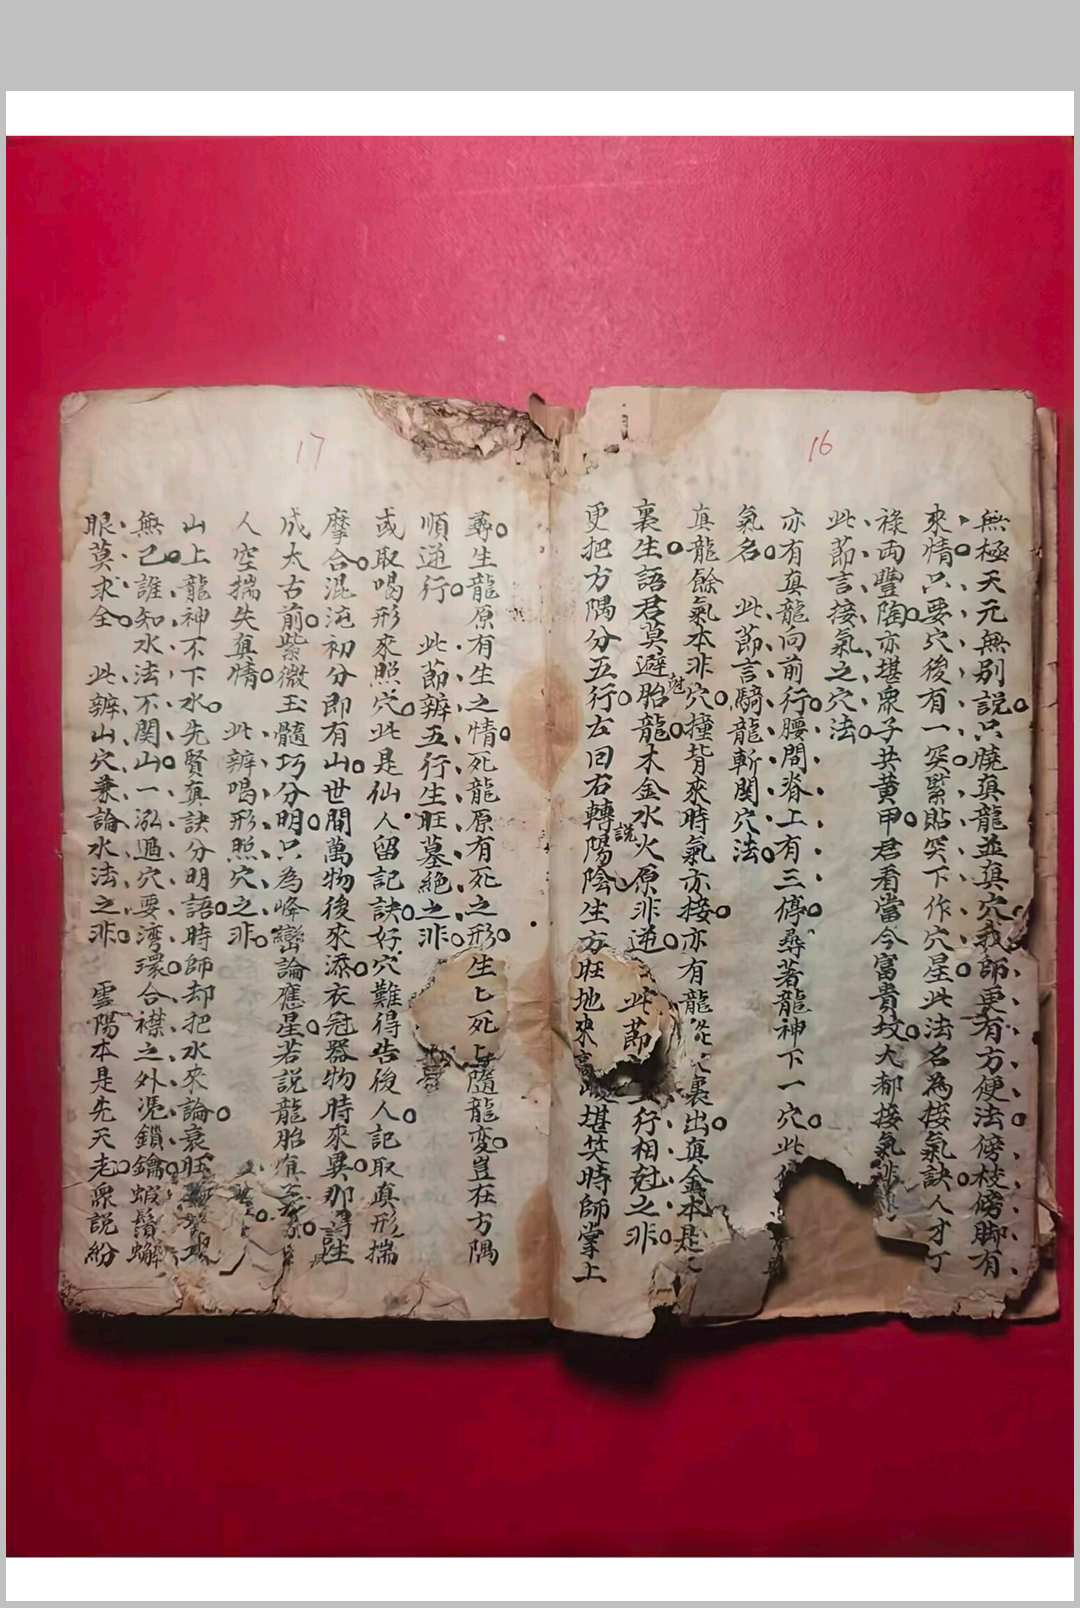 16
無極天元無别説只曉真龍並真穴我師更有方便法傍枝傍脚有
來情只要穴後有一突緊貼突下作穴星此法名為接氣訣人才丁
祿両豐陶亦堪衆子共黄甲君看當今富貴坟大都接氣非
此莭言接氣之穴法
亦有真龍向前行腰間脊上有三停尋著龍神下一穴此
氣名 此莭言騎龍斬関穴法
真龍餘氣本非穴撞背來時氣亦接亦有龍從裏出真金本是
裏生語君莫避胎龍説木金水火原非逓 此莭 行相尅之非
更把方隅分五行左曰右轉陽陰生方旺地來高峻堪笑時師掌上
17
尋生龍原有生之情死龍原有死之形生匕死匕隨龍変豈在方隅
順逓行 此莭辨五行生旺墓絶之非
或取喝形來照穴此是仙人留記訣好穴難得告後人記取真形揣
摩合混沌初分即有山世間萬物後來添衣冠器物時來異那話
成太古前紫微玉髓巧分明只為峰巒論應星若説龍胎
人空揣失真情 此辨喝形照穴之非
山上龍神不下水先賢真訣分明語時師却把水來論衰旺
無己誰知水法不関山一泓過穴要湾環合襟之外凴鎖鑰蝦鬚蠏
眼莫求全 此辨山穴兼論水法之非 雲陽本是先天老衆説紛